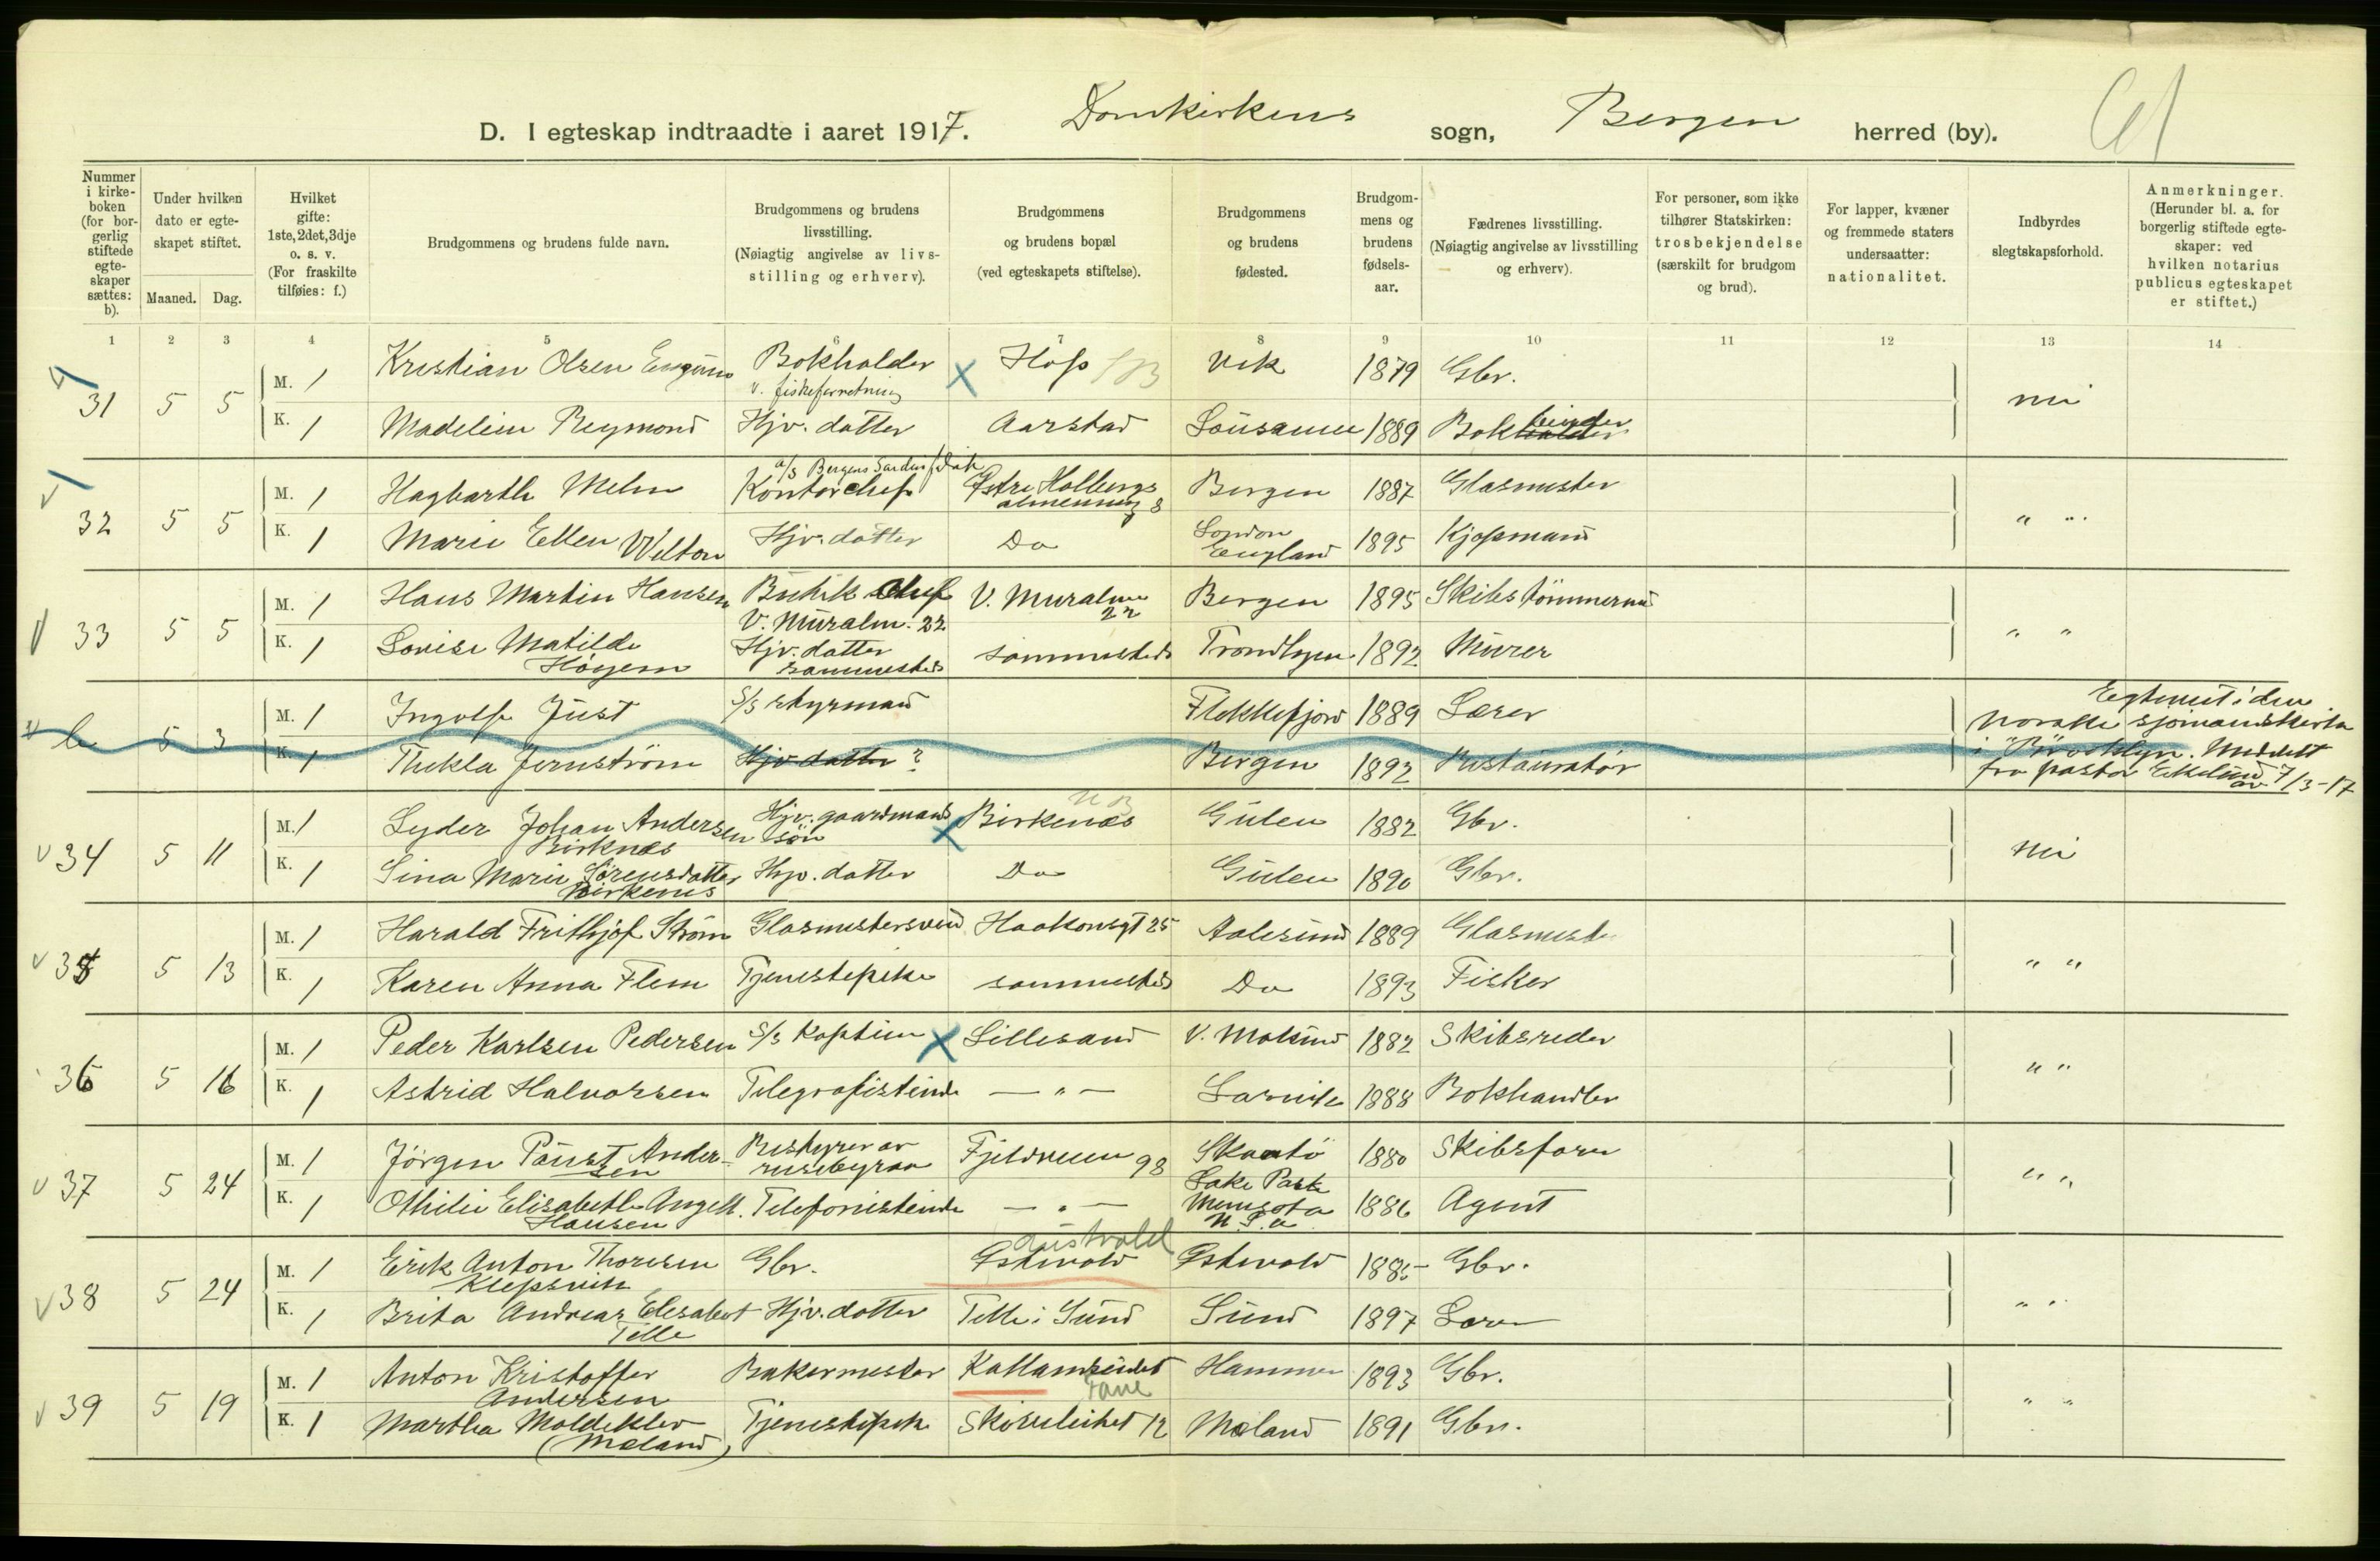 D. I egteskap indtraadte i aaret 1917. Domkirkens sogn, Bergen herred (by).
Nummer i kirkeboken (for borgerlig stiftede egteskaper sættes: b).
Under hvilken dato er egteskapet stiftet.
Maaned. Dag.
Hvilket gifte: 1ste, 2det, 3dje o. s. v. (For fraskilte tilføies: f.)
Brudgommens og brudens fulde navn.
Brudgommens og brudens livsstilling. (Nøiagtig angivelse av livsstilling og erhverv).
Brudgommens og brudens bopæl (ved egteskapets stiftelse).
Brudgommens og brudens fødested.
Brudgommens og brudens fødselsaar.
Fædrenes livsstilling. (Nøiagtig angivelse av livsstilling og erhverv).
For personer, som ikke tilhører Statskirken: trosbekjendelse (særskilt for brudgom og brud).
For lapper, kvæner og fremmede staters undersaatter: nationalitet.
Indbyrdes slegtskapsforhold.
Anmerkninger. (Herunder bl. a. for borgerlig stiftede egteskaper: ved hvilken notarius publicus egteskapet er stiftet.)
1 2 3 4 5 6 7 8 9 10 11 12 13 14
31 5 5 M. 1 Kristian Olsen Bokholder v. fiskeforretning Hop Vik 1879 Gbr. nei
K. 1 Madelein Reymond Hjv. datter Aarstad Lousanne 1889 Bokbinder
32 5 5 M. 1 Hagbarth Mehn a/s Bergens Sardinfabrik Kontorchef Østre Holbergs almenning 8 Bergen 1887 Glasmester " "
K. 1 Marie Ellen Welton Hjv. datter Do London England 1895 Kjøpmand
33 5 5 M. 1 Hans Martin Hansen Butik chef V. Muralm. 22 V. Muralm 22 Bergen 1895 Skibstømmermd " "
K. 1 Lovise Matilde Høyem Hjv. datter sammesteds sammesteds Trondhjem 1892 Murer
b 5 3 M. 1 Ingolf Just S/s styrmand Flekkefjord 1889 Lærer Egteviet i den norske sjømandskirke
K. 1 Thekla Jernström Hjv datter ? Bergen 1892 Restauratør i Brooklyn. Meddelt fra pastor Eikeland av 7/3-17
34 5 11 M. 1 Lyder Johan Andersen Birknes Hjv. gaardmands søn Birkenes Gulen 1882 Gbr. nei
K. 1 Sina Marie Sørensdatter Birkenes Hjv. datter Do Gulen 1890 Gbr.
35 5 13 M. 1 Harald Frithjof Strøm Glasmestersvend Haakonsgt 25 Aalesund 1889 Glasmester " "
K. 1 Karen Anna Flem Tjenestepike sammesteds Do 1893 Fisker
36 5 16 M. 1 Peder Karlsen Pedersen S/s Kaptein Lillesand V. Moland 1882 Skibsreder " "
K. 1 Astrid Halvorsen Telegrafistinde — " — Larvik 1888 Bokhandler
37 5 24 M. 1 Jörgen Paust Andersen Bestyrer av reisebyraa Fjeldveien 98 Skaatö 1880 Skibsfører " "
K. 1 Othilie Elisabeth Angell Hansen Telefonistinde — " — Lake Park Menesota U. S. a 1886 Agent
38 5 24 M. 1 Erik Anton Thoresen Klepsvik Gbr. Østevold Austvold Østevold 1885 Gbr. " "
K. 1 Brita Andreas Elesabet Telle Hjv. datter Telle i Sund Sund 1897 Lærer
39 5 19 M. 1 Anton Kristoffer Andersen Bakermester Kallandseidet Fane Hammer 1893 Gbr. " "
K. 1 Martha Moldeklev (Mæland) Tjenestepike Skiveleiket 12 Mæland 1891 Gbr.